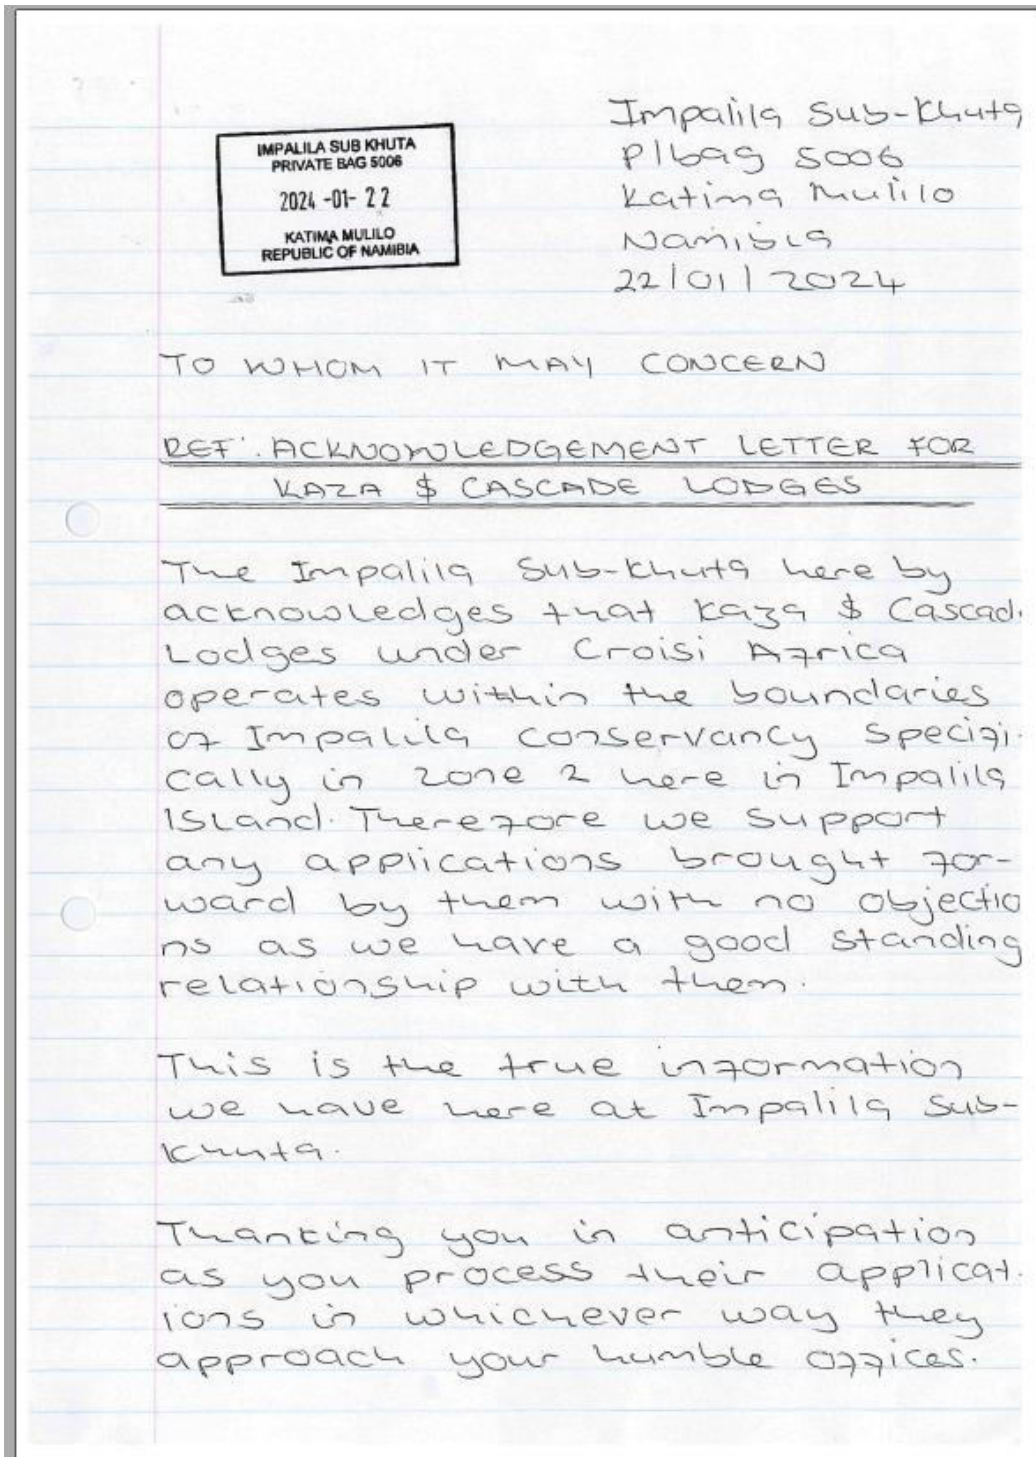 Impalila Sub-Khuta
P/bag 5006
Katima Mulilo
Namibia
22/01/2024
IMPALILA SUB KHUTA
PRIVATE BAG 5006
2024 -01- 22
KATIMA MULILO
REPUBLIC OF NAMIBIA
TO WHOM IT MAY CONCERN
REF: ACKNOWLEDGEMENT LETTER FOR
KAZA $ CASCADE LODGES
The Impalila Sub-Khuta here by
acknowledges that Kaza $ Cascad
Lodges under Croisi Africa
operates within the boundaries
of Impalila conservancy specifi-
cally in zone 2 here in Impalila
Island. Therefore we support
any applications brought for-
ward by them with no objectio
ns as we have a good standing
relationship with them.
This is the true information
we have here at Impalila Sub-
Khuta.
Thanking you in anticipation
as you process their applicat-
ions in whichever way they
approach your humble offices.